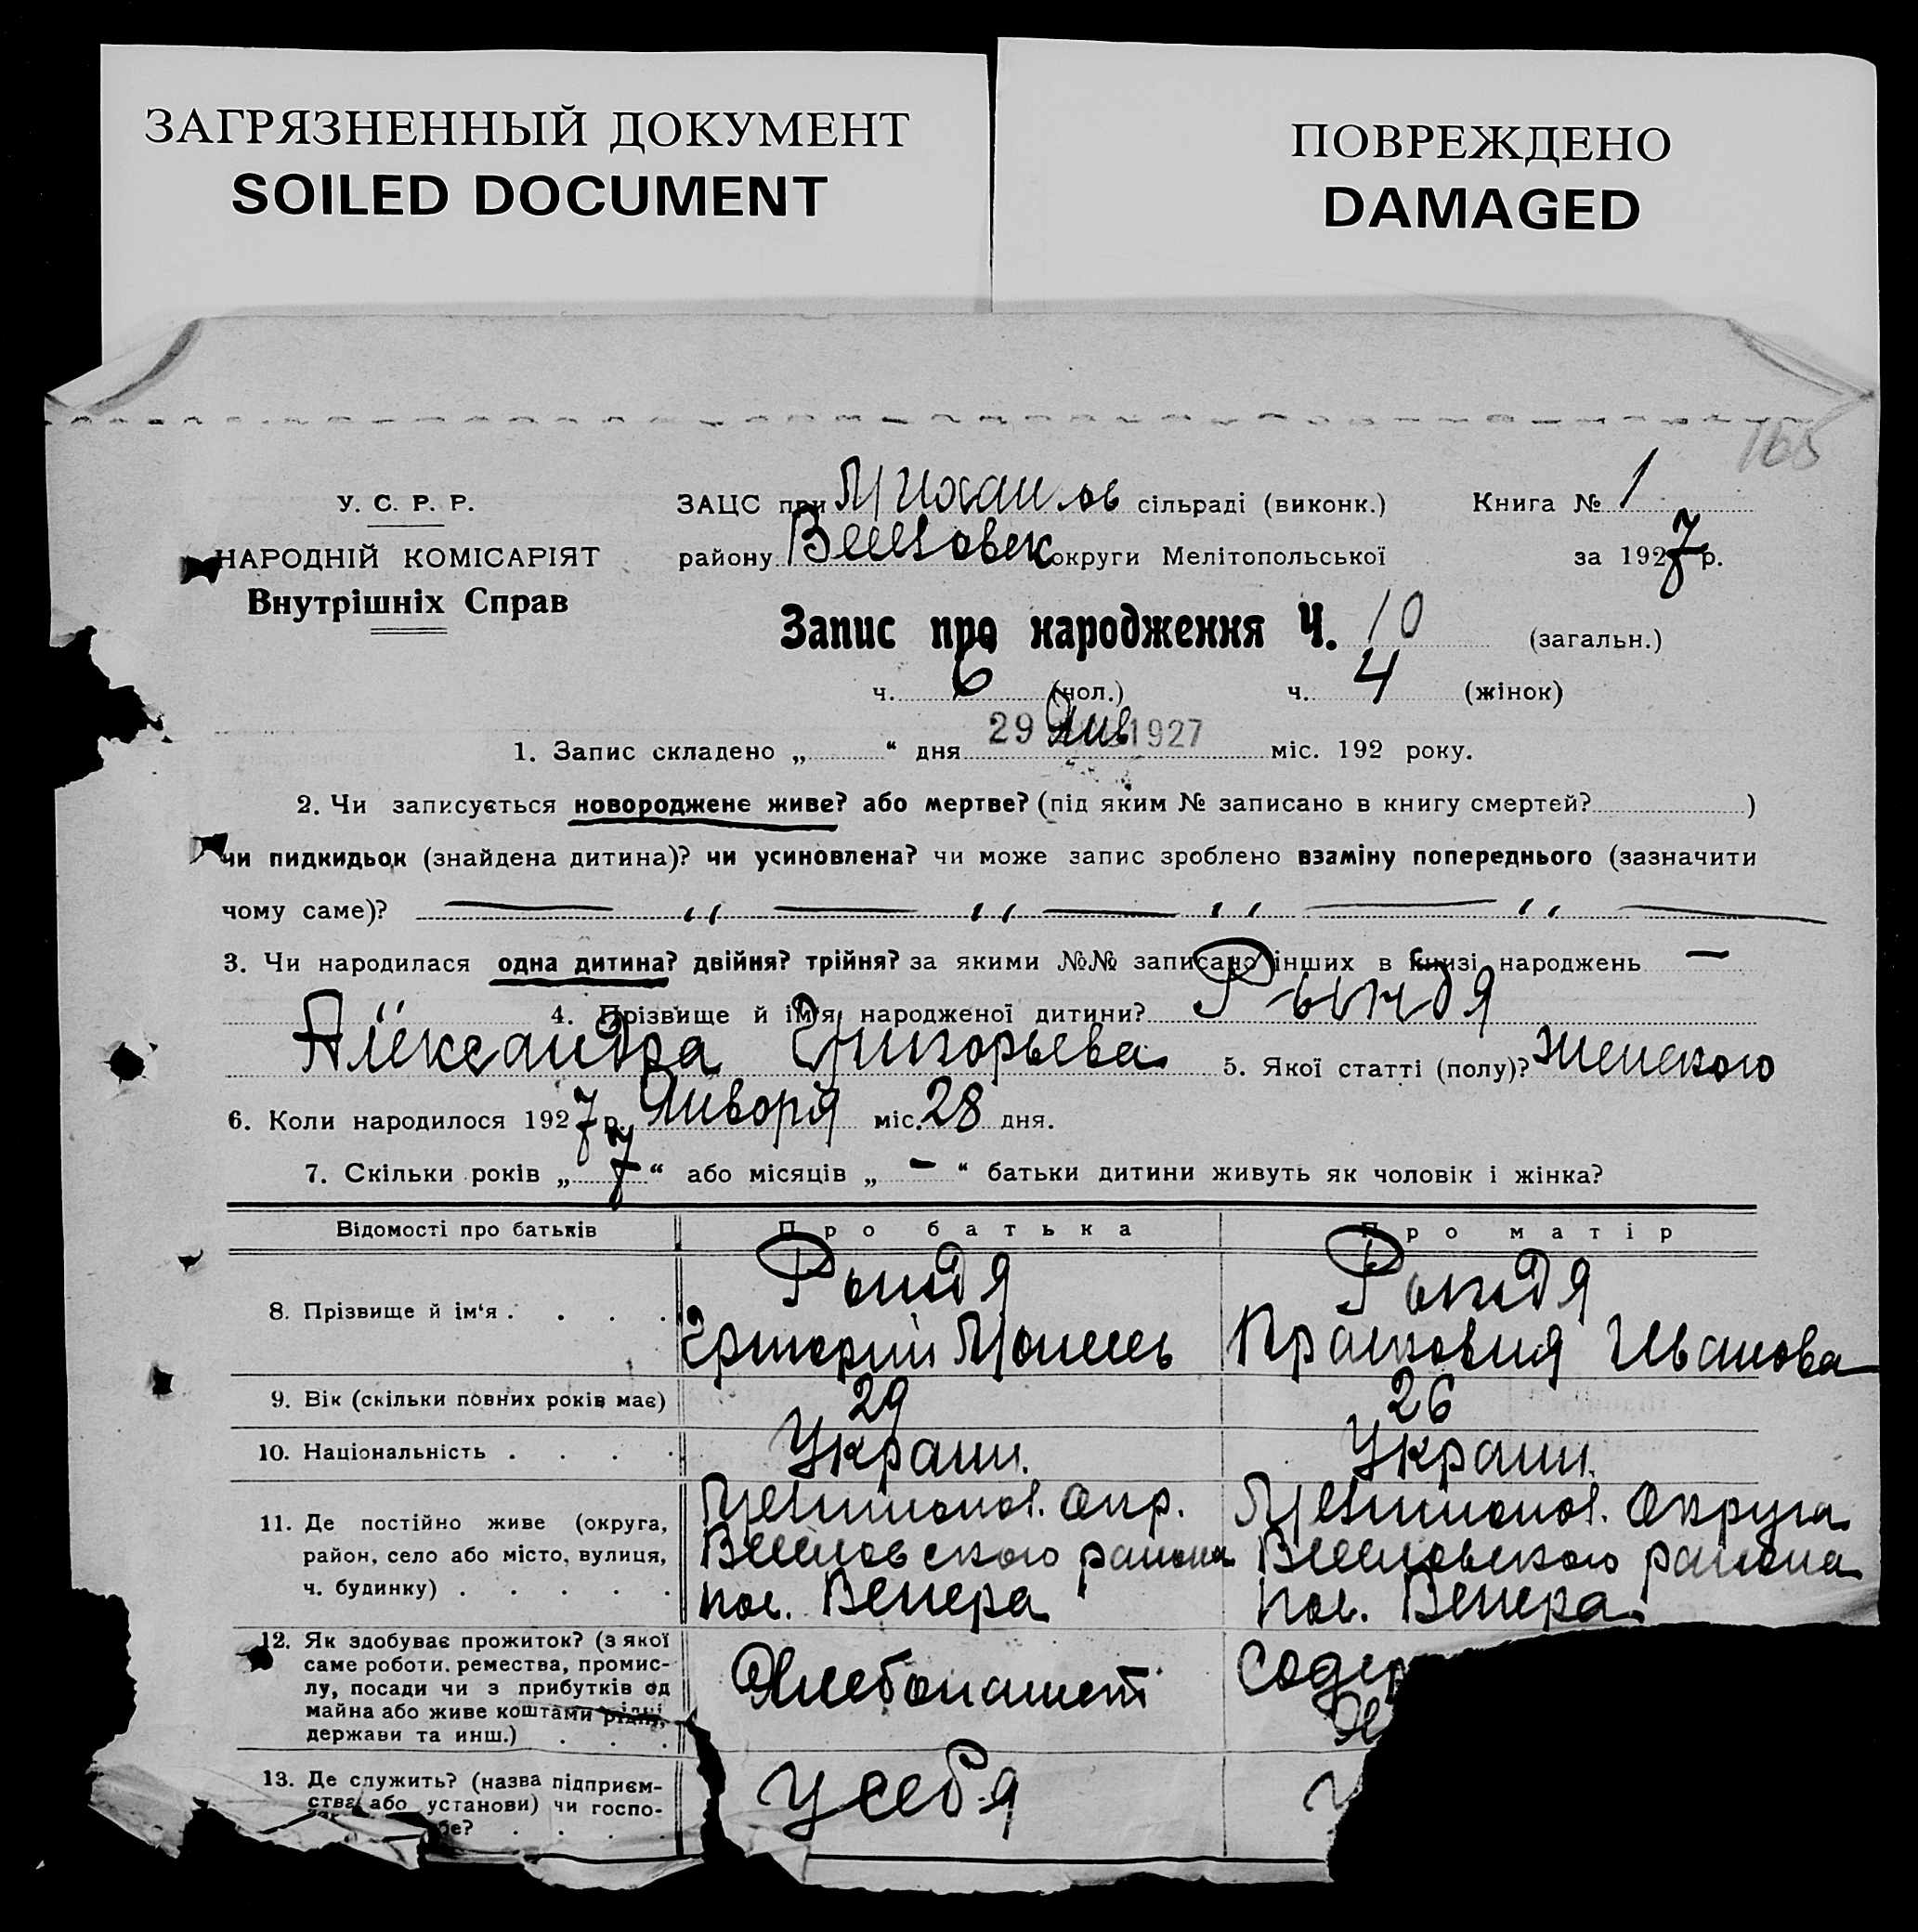 ЗАГРЯЗНЕННЫЙ ДОКУМЕНТ
SOILED DOCUMENT
ПОВРЕЖДЕНО
DAMAGED
165
У. С. Р. Р.
НАРОДНІЙ КОМІСАРІЯТ
Внутрішніх Справ
ЗАЦС при Михайлов сільраді (виконк.) Книга № 1
району Веселовск округи Мелітопольської за 1927 р.
Запис про народження Ч. 10 (загальн.)
ч. 6 (чол.) ч. 4 (жінок)
1. Запис складено „ “ дня 29 Янв 1927 міс. 192 року.
2. Чи записується новороджене живе? або мертве? (під яким № записано в книгу смертей? )
чи пидкидьок (знайдена дитина)? чи усиновлена? чи може запис зроблено взаміну попереднього (зазначити
чому саме)? — „ — „ — „ — „ —
3. Чи народилася одна дитина? двійня? трійня? за якими №№ записано інших в книзі народжень —
4. Прізвище й ім'я народженої дитини? Рындя
Александра Григорьева 5. Якої статті (полу)? Женского
6. Коли народилося 1927 р. Января міс. 28 дня.
7. Скільки років „ 7 “ або місяців „ — “ батьки дитини живуть як чоловік і жінка?
Відомості про батьків Про батька Про матір
8. Прізвище й ім'я . . . .
Рындя
Григорий Моисеев
Рындя
Прасковия Иванова
9. Вік (скільки повних років має) 29 26
10. Національність . . . . Украин. Украин.
11. Де постійно живе (округа,
район, село або місто, вулиця,
ч. будинку) . . . . .
Мелитопол. Окр.
Веселовского района
пос. Венера
Мелитопол. Округа
Веселовского района
пос. Венера
12. Як здобуває прожиток? (з якої
саме роботи, ремества, промис-
лу, посади чи з прибутків од
майна або живе коштами рідні,
держави та инш.) . . .
Хлебопашест
Содер
13. Де служить? (назва підприєм-
ства або установи) чи госпо-
бе? . . . .
У себя
У